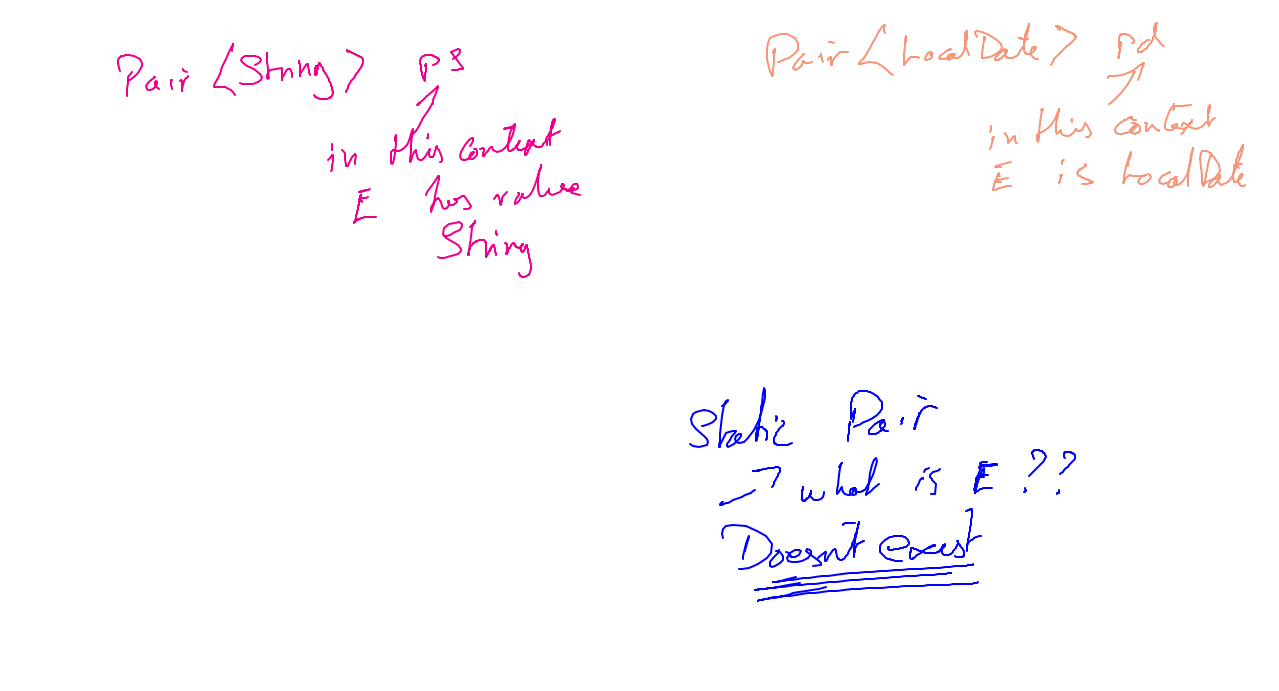 Pair <String> ps
in this context
E has value
String
Pair <LocalDate> pd
in this context
E is LocalDate
Static Pair
→ what is E ??
Doesn't exist